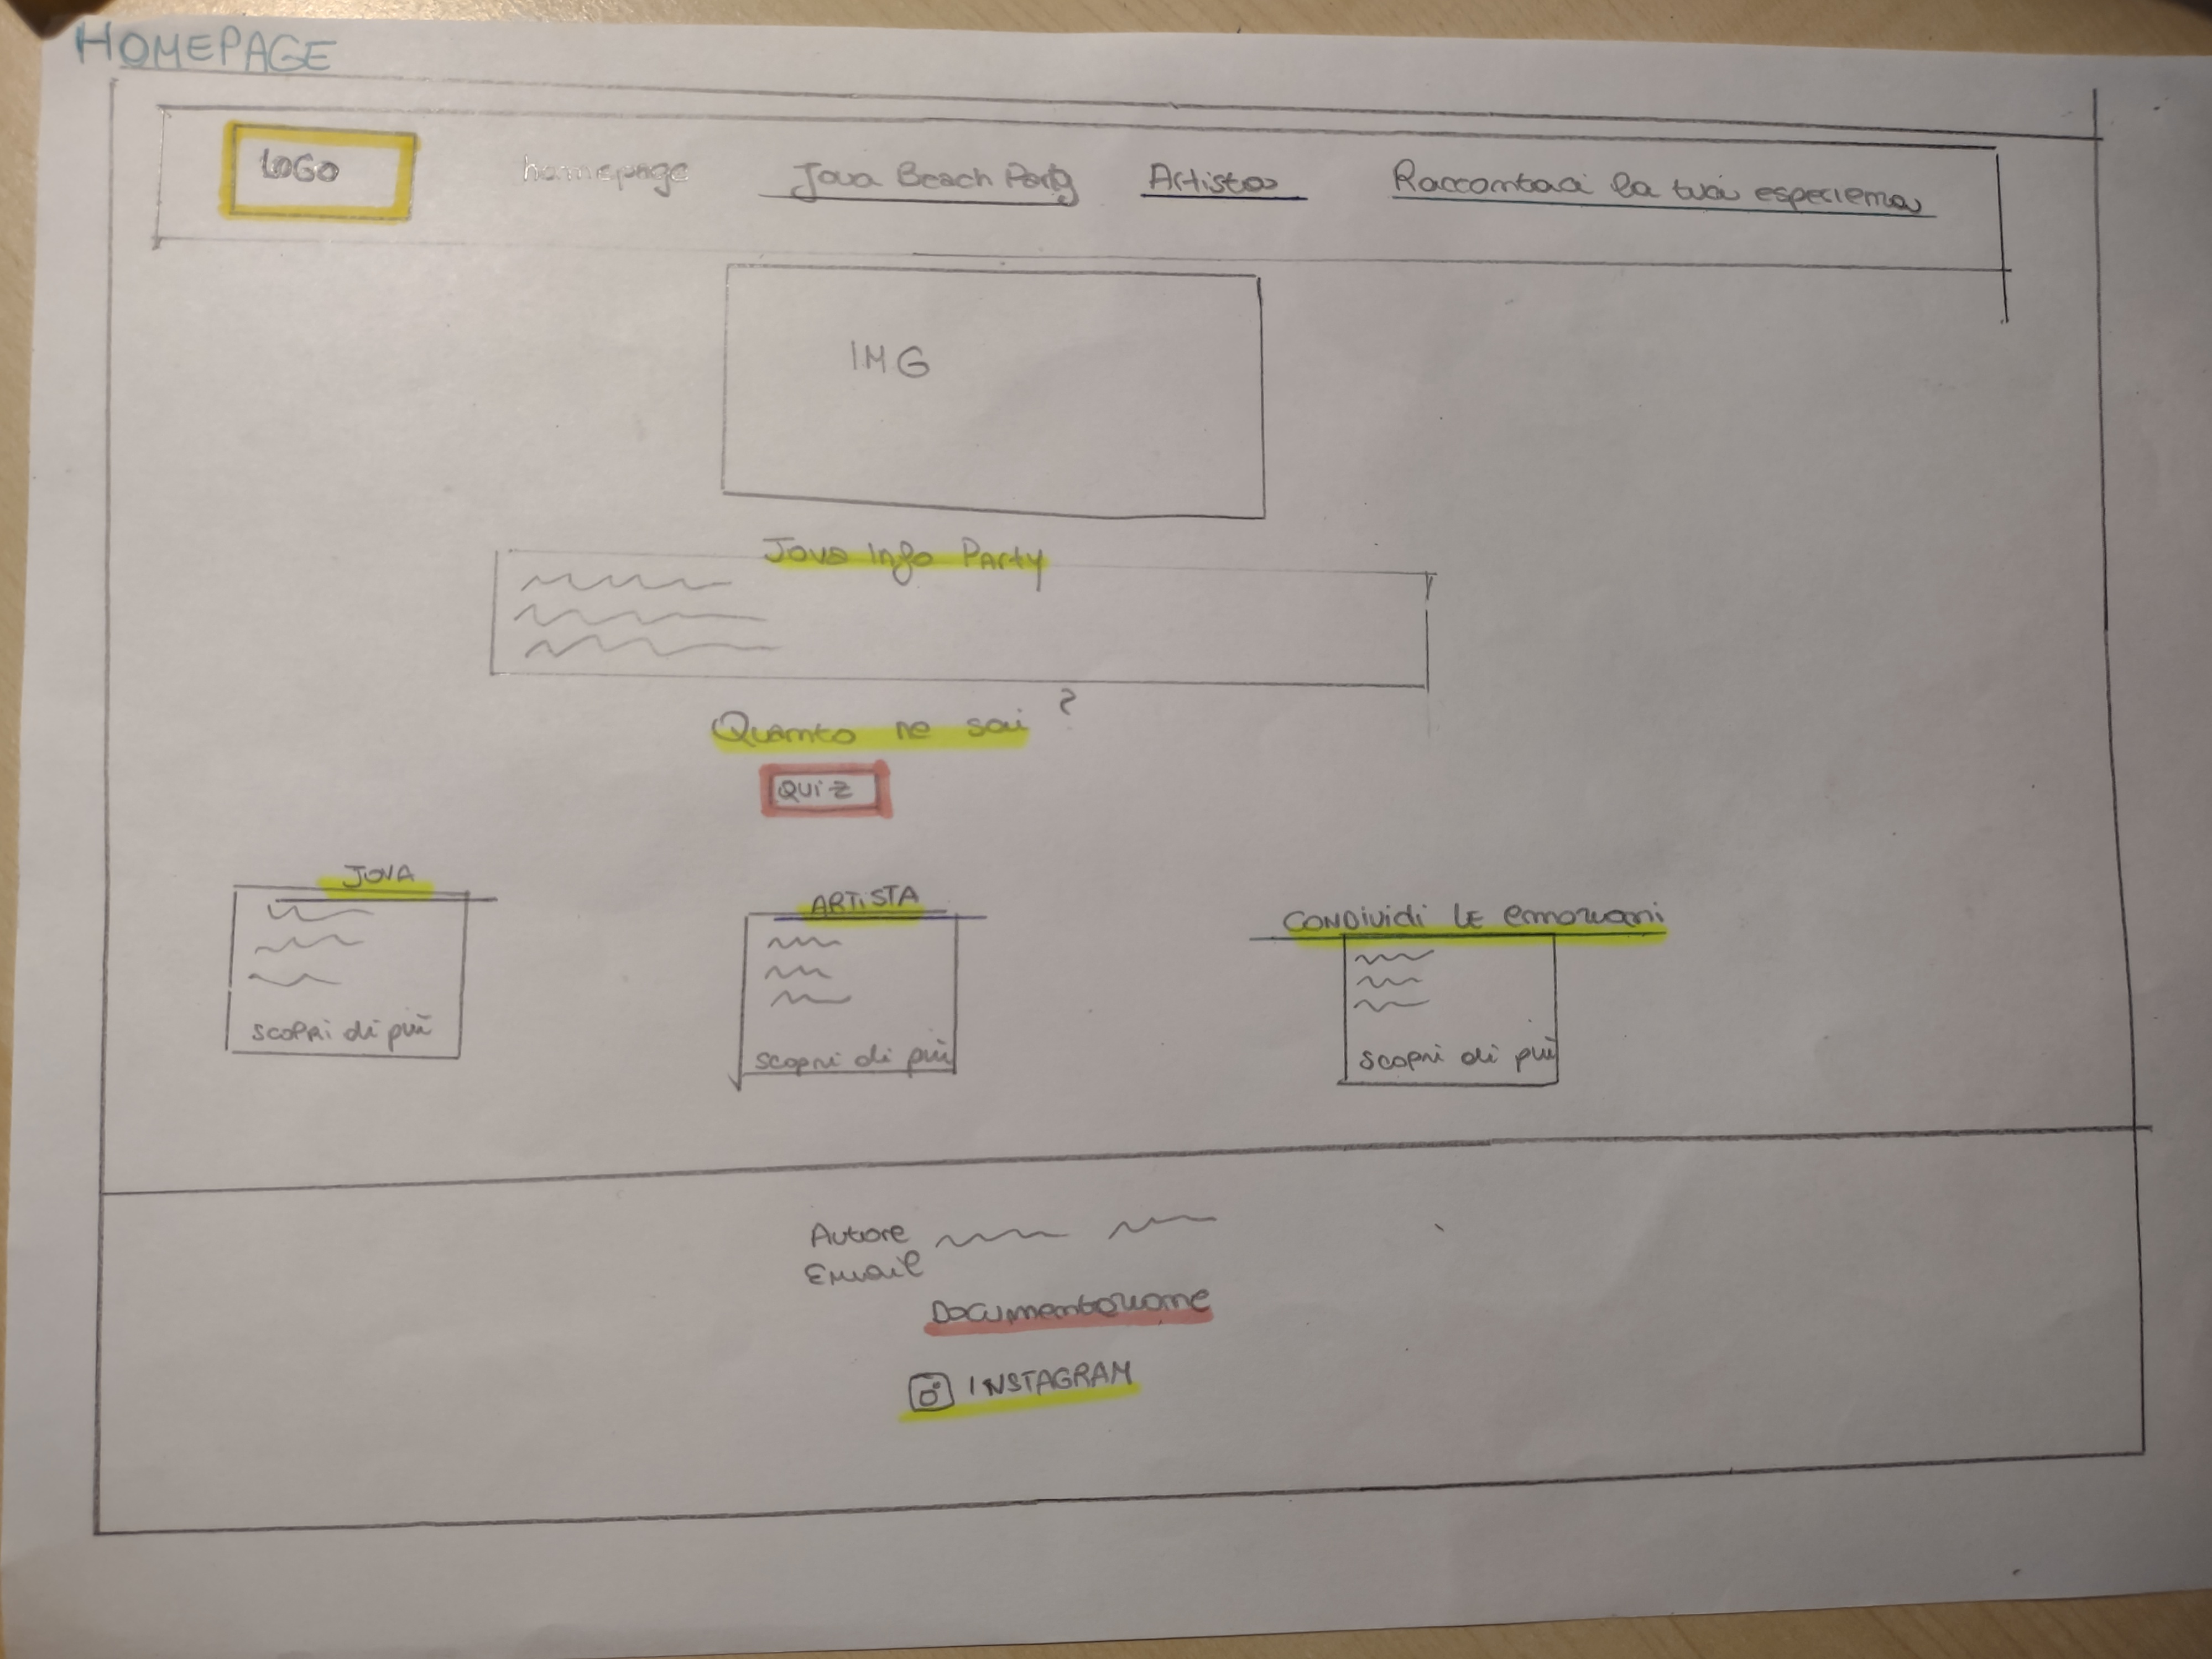 HOMEPAGE
LOGO homepage Jova Beach Party Artista Raccontaci la tua esperienza
IMG
Jova Info Party
Quanto ne sai ?
QUIZ
JOVA
scopri di più
ARTISTA
scopri di più
CONDIVIDI LE emozioni
scopri di più
Autore
Email
Documentazione
INSTAGRAM